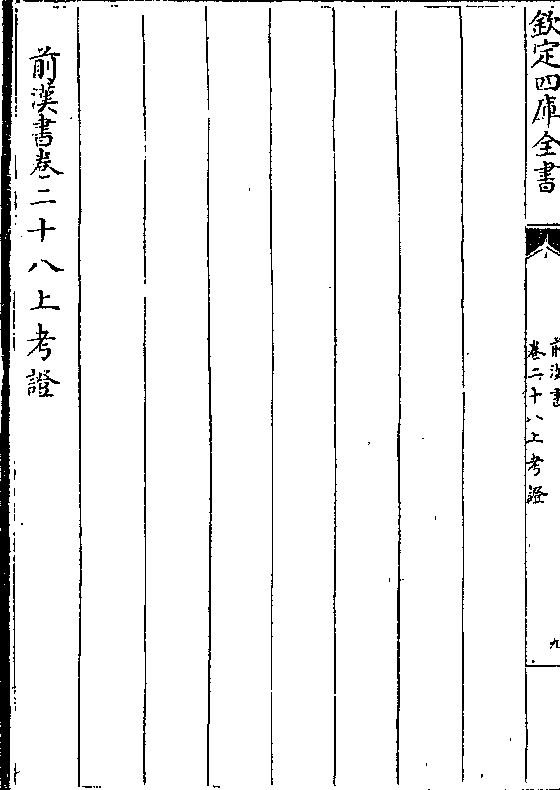 欽定四庫全書
前漢書
卷二十八上考證
九
前漢書卷二十八上考證